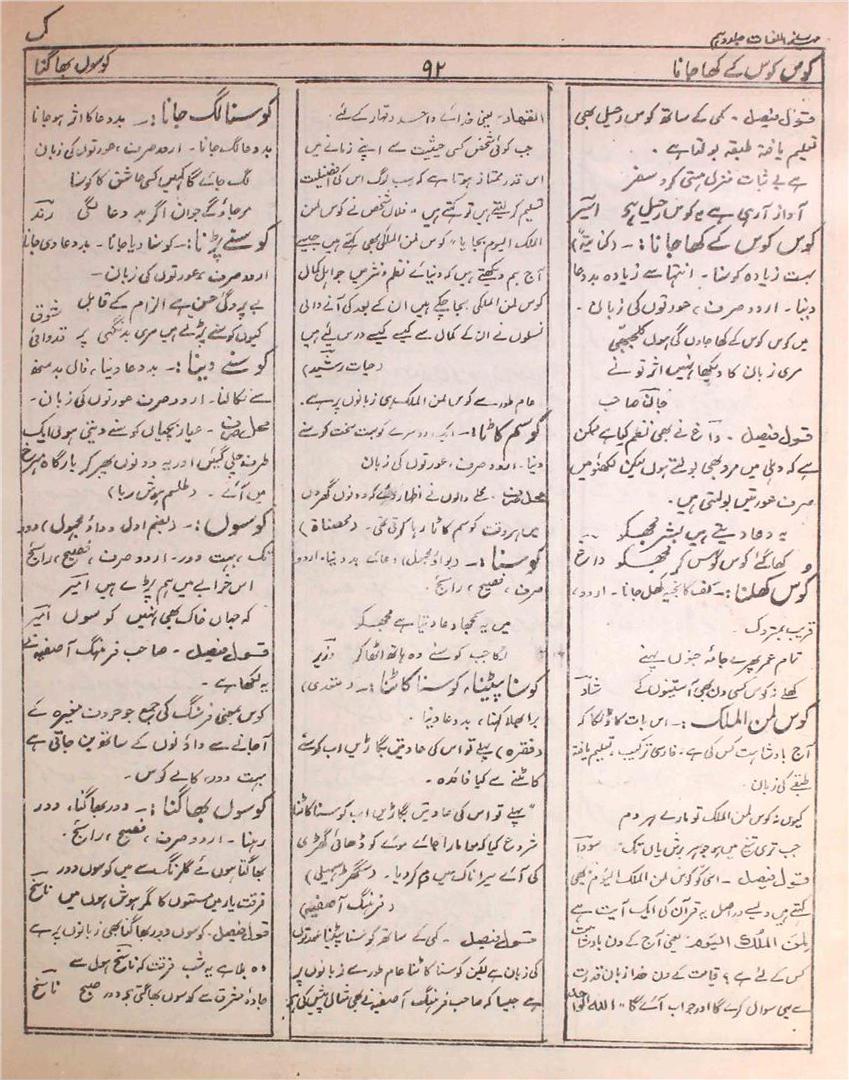 مہذب اللغات جلد دہم
ک
کوس کوس کے کھا جانا
۹۲
کوسوں بھاگنا
قول فیصل۔ کمی کے ساتھ کوس رحیل بھی
تعلیم یافتہ طبقہ بولتا ہے۔
ہے بے ثبات منزل ہستی کرو سفر
آواز آرہی ہے یہ کوس رحیل کی امیر
کوس کوس کے کھا جانا:۔ (کنایۃً)
بہت زیادہ کوسنا۔ انتہا سے زیادہ بددعا
دینا۔ اردو صرف، عورتوں کی زبان۔
میں کوس کوس کے کھا جاوں گی ہوں کلجبھی
مری زبان کا دیکھا نہیں اثر تو نے
جان صاحب
قول فیصل۔ داغ نے بھی نظم کیا ہے ممکن
ہے کہ دہلی میں مرد بھی بولتے ہوں لیکن لکھنؤ میں
صرف عورتیں بولتی ہیں۔
یہ دعا دیتے ہیں بشر مجھکو
کھا گئے کوس کوس کر مجھکو داغ
کوس کھلنا:۔ کف کا بخیہ کھل جانا۔ اردو،
قریب بمتروک۔
تمام عمر پھرے جامۂ جنوں پہنے
کھلے نہ کوس کسی دن بھی آستینوں کے شاد
کوس لمن الملک:۔ اس بات کا ڈنکا کہ
آج بادشاہت کس کی ہے۔ فارسی ترکیب، تعلیم یافتہ
طبقے کی زبان۔
کیوں نہ کوس لمن الملک تو مارے ہر دم
جب تری تیغ میں ہو جوہر برش یاں تک سودا
قول فیصل۔ اسی کو کوس لمن الملک الیوم بھی
کہتے ہیں ویسے در اصل یہ قرآن کی ایک آیت ہے
لِمَن الملک الیوم یعنی آج کے دن بادشاہت
کس کے لئے ہے؟ قیامت کے دن خدا بزبان قدرت
سے یہی سوال کرے گا اور جواب آئے گا "اللہ الواحد
القھار۔ یعنی خدائے واحد و قہار کے لئے۔
جب کوئی شخص کسی حیثیت سے اپنے زمانے میں
اس قدر ممتاز ہوتا ہے کہ سب لوگ اس کی افضلیت
تسلیم کر لیتے ہیں تو کہتے ہیں "فلاں شخص نے کوس لمن
الملک الیوم بجایا" کوس لمن الملکی بھی کہتے ہیں جیسے
آج ہم دیکھتے ہیں کہ دنیائے نظم و نثر میں جو اہل کمال
کوس لمن الملکی بجا چکے ہیں ان کے بعد کی آنے والی
نسلوں نے ان کے کمال سے کیسے کیسے درس لئے ہیں
(حیات رشید)
عام طور سے کوس لمن الملک ہی زبانوں پر ہے۔
کوسم کاٹا:۔ ایک دوسرے کو بہت سخت کوسنے
دینا۔ اردو صرف، عورتوں کی زبان
محل صرف۔ محلے والوں نے اظہار دئے کہ دونوں گھروں
میں ہر وقت کوسم کاٹا رہا کرتی تھی۔ (محصناۃ)
کوسنا:۔ (بواو مجہول) دعائے بد دینا۔ اردو
صرف، فصیح، رائج۔
میں یہ سمجھا دعا دیتا ہے مجھکو
لگا جب کوسنے وہ ہاتھ اٹھا کر وزیر
کوسنا پیٹنا، کوسنا کاٹنا:۔ (متعدی)
برا بھلا کہنا، بددعا دینا۔
(فقرہ) پہلے تو اس کی عادتیں بگاڑیں اب کوسنے
کاٹنے سے کیا فائدہ۔
"پہلے تو اس کی عادتیں بگاڑیں اب کوسنا کاٹنا
شروع کیا کہ موا مارا جائے موئے کو ڈھائی گھڑی
کی آئے میرا ناک میں دم کر دیا۔ (سگھڑ سہیلی)
(فرہنگ آصفیہ)
قول فیصل۔ کمی کے ساتھ کوسنا پیٹنا عورتوں
کی زبان ہے لیکن کوسنا کاٹنا عام طور سے زبانوں پر
ہے جیسا کہ صاحب فرہنگ آصفیہ نے بھی مثال پیش کی ہے
کوسنا لگ جانا:۔ بددعا کا اثر ہو جانا
بددعا لگ جانا۔ اردو صرف، عورتوں کی زبان
لگ جائے گا کہیں کسی عاشق کا کوسنا
مر جاؤ گے جوان اگر بد دعا لگی رند
کوسنے پڑنا:۔ کوسنا دیا جانا۔ بددعا دی جانا
اردو صرف، عورتوں کی زبان۔
بے پردگی حسن ہے الزام کے قابل
کیوں کوسنے پڑتے ہیں مری بد نگہی پر شوق قدوائی
کوسنے دینا:۔ بددعا دینا، فال بد منھ
سے نکالنا۔ اردو صرف عورتوں کی زبان۔
محل صرف۔ عیار بچیاں کوسنے دیتی ہوئی ایک
طرف چلی گئیں اور یہ دونوں پھر کر بارگاہ مہرخ
میں آئے۔ (طلسم ہوش ربا)
کوسوں:۔ (بضم اول و واؤ مجہول) دور
تک، بہت دور۔ اردو صرف، فصیح، رائج
اس خرابے میں ہم پڑے ہیں امیر
کہ جہاں خاک بھی نہیں کوسوں امیر
قول فیصل۔ صاحب فرہنگ آصفیہ نے
یہ لکھا ہے۔
کوس بمعنی فرسنگ کی جمع جو حروف مغیرہ کے
آ جانے سے واؤ نوں کے ساتھ بن جاتی ہے
بہت دور، کالے کوس۔
کوسوں بھاگنا:۔ دور بھاگنا، دور
رہنا۔ اردو صرف، فصیح، رائج۔
بھاگتا ہوں نئے گلرنگ سے میں کوسوں دور
فرقت یار میں مستوں کا مگر ہوش ہوں میں ناسخ
قول فیصل۔ کوسوں دور بھاگنا بھی زبانوں پر ہے
وہ بلا ہے یہ شب فرقت کہ ناسخ ہول سے
جادۂ مشرق سے کوسوں بھاگتی ہے دور صبح ناسخ